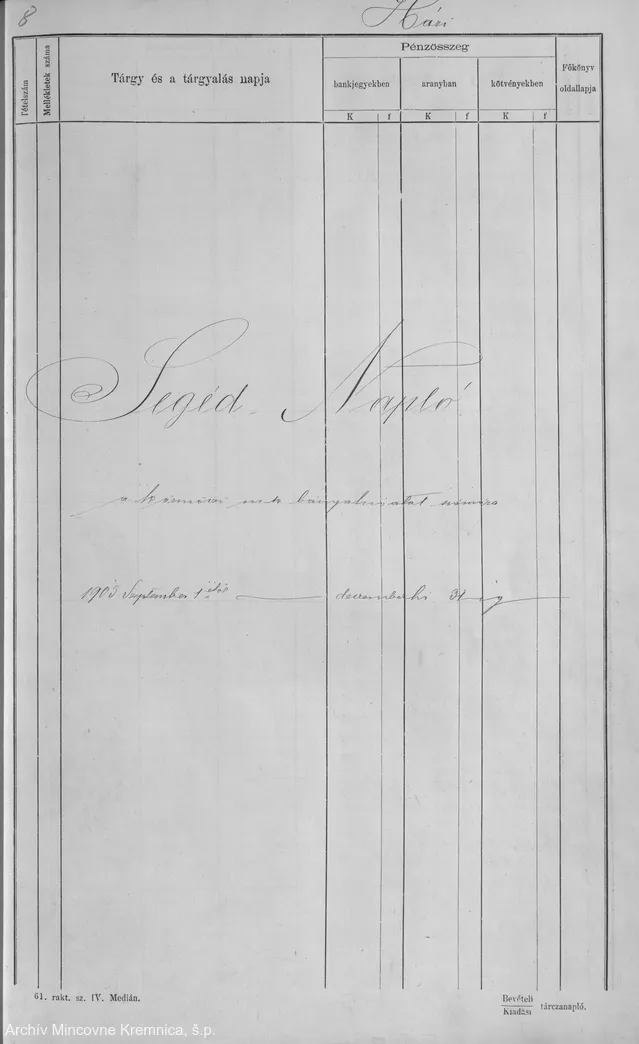 8
Házi
Tételszám
Mellékletek száma
Tárgy és a tárgyalás napja
Pénzösszeg
bankjegyekben
aranyban
kötvényekben
Főkönyv oldallapja
K f K f K f
Segéd Napló
a számára
1903 September 1 étől decemberhi 31 ig
61. rakt. sz. IV. Medián.
Bevételi
Kiadási
tárczanapló.
Archív Mincovne Kremnica, š.p.